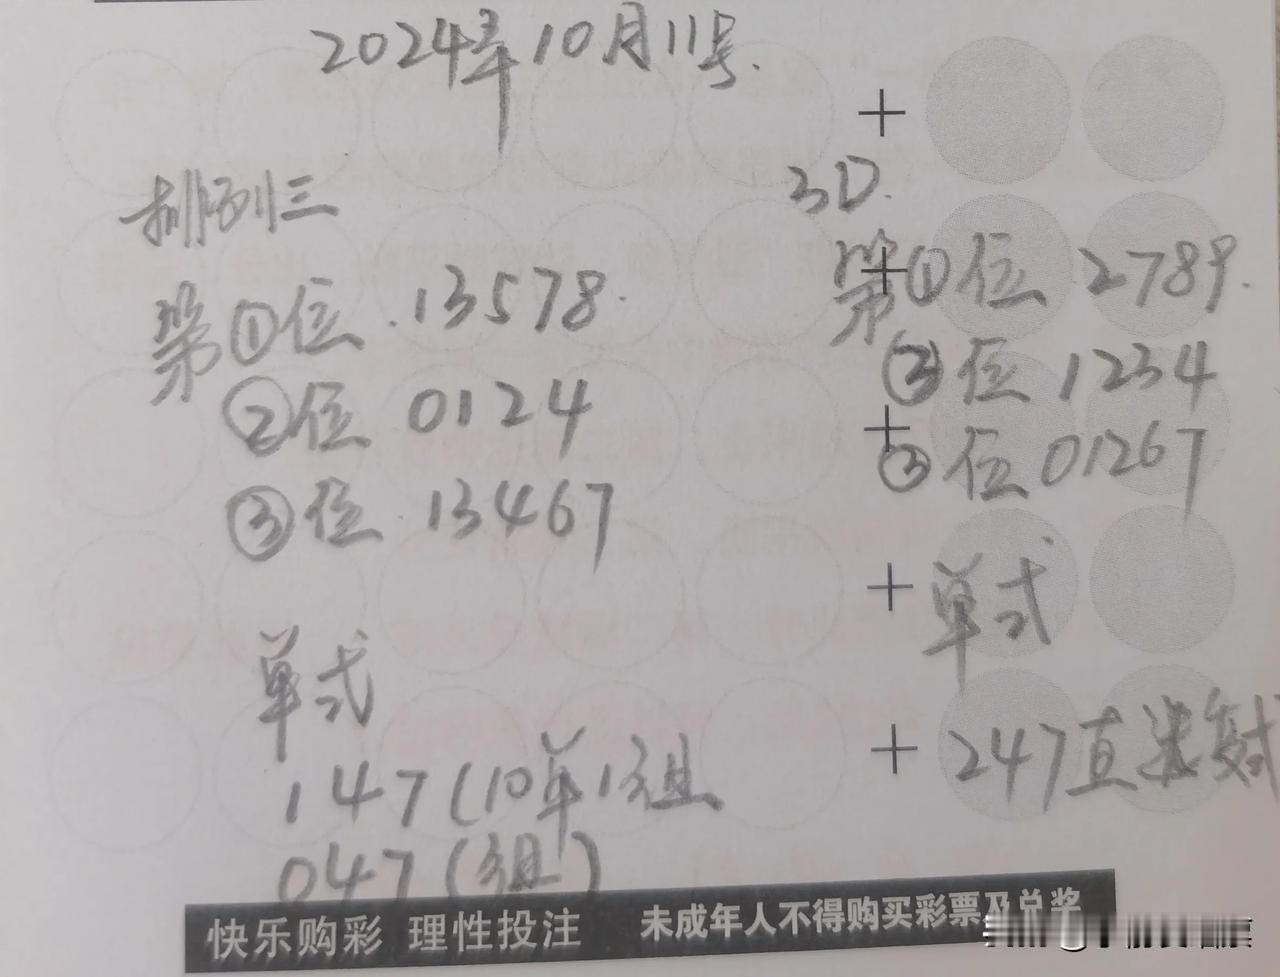 2024年10月11号.
排列三
第①位.13578.
②位 0124
③位.13467
单式
147(10单1组
047(组)
3D.
第①位 2789.
②位 1234
③位01267
单式
247直 复式
快乐购彩 理性投注 未成年人不得购买彩票及兑奖